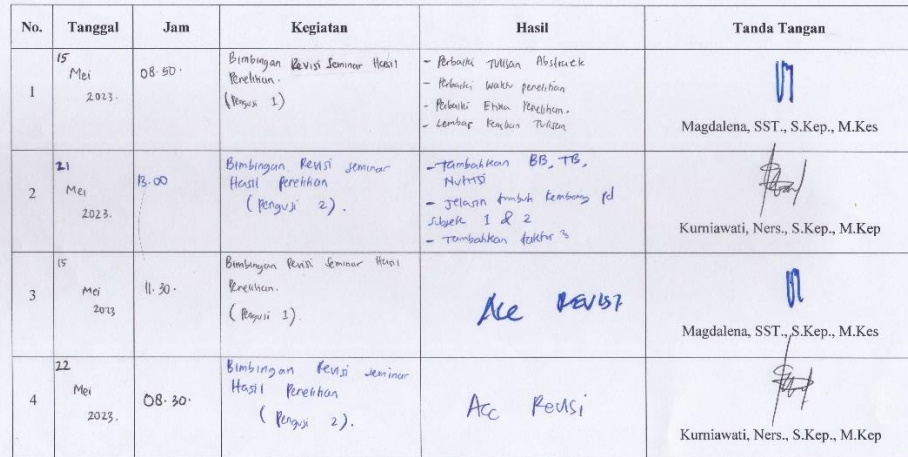 No. Tanggal Jam Kegiatan Hasil Tanda Tangan
1
15
Mei
2023.
08.50.
Bimbingan Revisi Seminar Hasil
Penelitian.
(Penguji 1)
- Perbaiki Tulisan Abstrack
- Perbaiki waktu penelitian
- Perbaiki Etika Penelitian.
- Lembar Tulisan
Magdalena, SST., S.Kep., M.Kes
2
21
Mei
2023.
13.00
Bimbingan Revisi Seminar
Hasil Penelitian
(Penguji 2).
- Tambahkan BB, TB,
Nutrisi
- Jelasin tumbuh kembang pd
subjek 1 & 2
- Tambahkan faktor 2
Kurniawati, Ners., S.Kep., M.Kep
3
15
Mei
2023
11.30.
Bimbingan Revisi Seminar Hasil
Penelitian.
(Penguji 1).
Acc REVISI
Magdalena, SST., S.Kep., M.Kes
4
22
Mei
2023.
08.30.
Bimbingan Revisi Seminar
Hasil Penelitian
(Penguji 2).
Acc Revisi
Kurniawati, Ners., S.Kep., M.Kep